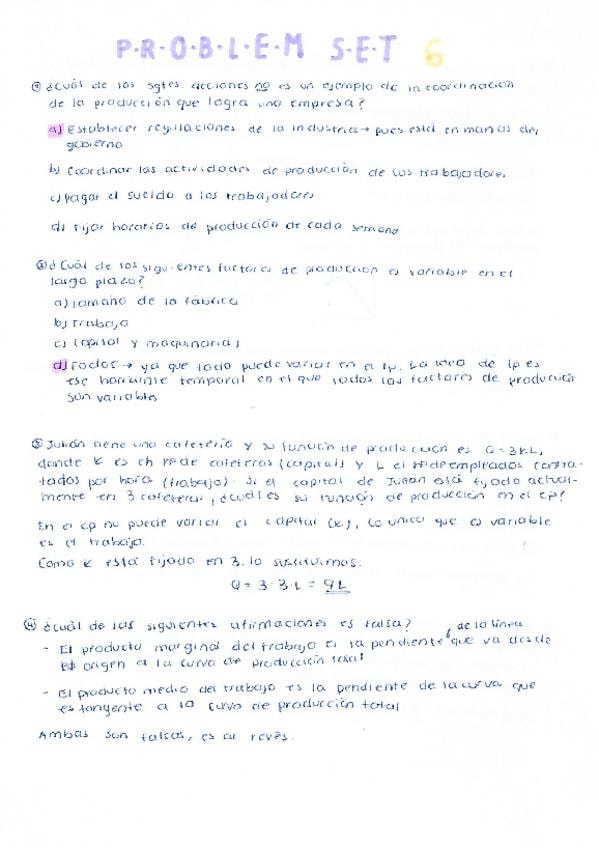 P.R.O.B.L.E.M S.E.T 6
① ¿Cuál de las sgtes. acciones no es un ejemplo de la coordinación
de la producción que logra una empresa?
a) Establecer regulaciones de la industria → pues está en manos del
gobierno
b) Coordinar las actividades de producción de los trabajadores
c) Pagar el sueldo a los trabajadores
d) Fijar horarios de producción de cada semana
② ¿Cuál de los siguientes factores de producción es variable en el
largo plazo?
a) Tamaño de la fábrica
b) Trabajo
c) Capital y maquinarias
d) Todos → ya que todo puede variar en el lp. La idea de lp es
ese horizonte temporal en el que todos los factores de producción
son variables
③ Julián tiene una cafetería y su función de producción es Q = 3KL,
donde K es el nº de cafeteras (capital) y L el nº de empleados contra-
tados por hora (trabajo). Si el capital de Julián está fijado actual-
mente en 3 cafeteras, ¿cuál es su función de producción en el cp?
En el cp no puede variar el capital (K), lo único que es variable
es el trabajo.
Como K está fijado en 3, lo sustituimos:
Q = 3·3·L = 9L
④ ¿Cuál de las siguientes afirmaciones es falsa?
- El producto marginal del trabajo es la pendiente de la línea que va desde
el origen a la curva de producción total
- El producto medio del trabajo es la pendiente de la curva que
es tangente a la curva de producción total
Ambas son falsas, es al revés.